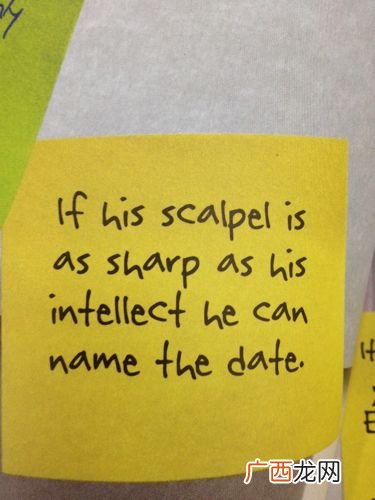 If his scalpel is
as sharp as his
intellect he can
name the date.
It
E
广西龙网